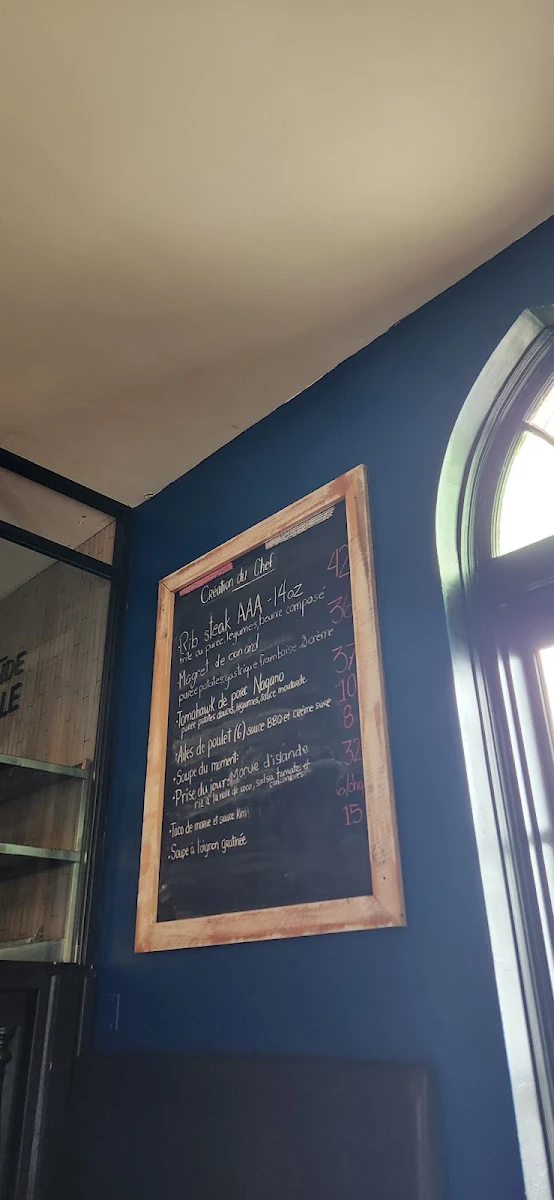 Création du Chef
Rib steak AAA - 14oz 42
frite ou purée, légumes, beurre composé
Magret de canard 36
purée patates, gastrique framboise
Tomahawk de porc Nagano 37
purée patates douces, légumes, sauce moutarde
Ailes de poulet (6) sauce BBQ et crème sure 10
Soupe du moment: 8
Prise du jour: Morue d'islande 32
riz à la noix de coco, salsa tomates et
concombres
Taco de morue et sauce Kimi 6/chq
Soupe à l'oignon gratinée 15